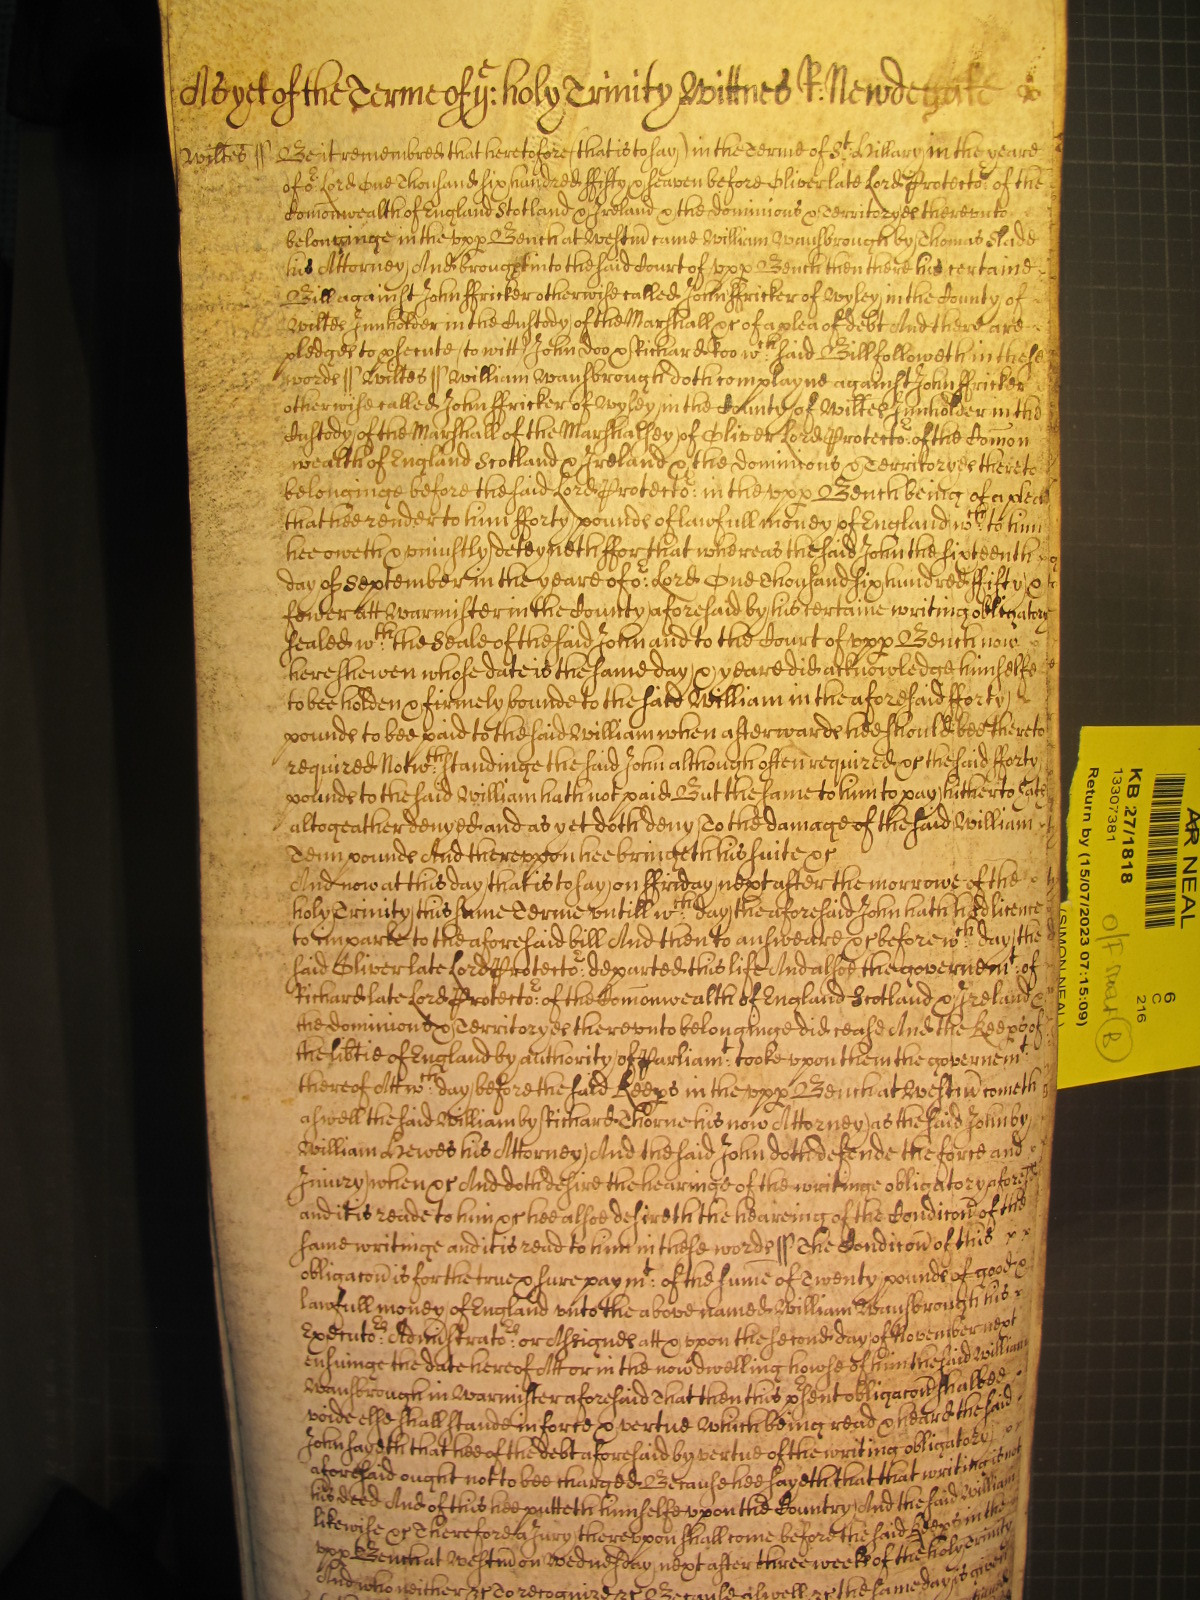 As yet of the Terme of ye: holy Trinity Wittnes R: Newdegate
Wiltes ss Be it remembred that heretofore (that is to say) in the Terme of St: Hillary in the yeare
of or: Lord One Thousand six hundred ffifty & seaven before Oliver late Lord Protector: of the
Comonwealth of England Scotland & Ireland & the dominions & Territoryes therevnto
belonginge in the vpp Bench at Westm came William Wansbrough by Thomas Slade
his Attorney And brought into the said Court of vpp Bench then there his certaine
Bill against John ffricker otherwise called John ffricker of Wyley in the County of
Wiltes Innholder in the Custody of the Marshall &c of a plea of debt And there are
pledges to psecute to witt John Doo & Richard Roo wch: said Bill followeth in these
words ss Wiltes ss William Wansbrough doth complayne against John ffricker
otherwise called John ffricker of Wyley in the County of Wiltes Innholder in the
Custody of the Marshall of the Marshalsey of Oliver Lord Protector: of the Comon
wealth of England Scotland & Ireland & the dominions & Territoryes thereto
belonginge before the said Lord Protector: in the vpp Bench being of a plea
that hee render to him fforty pounds of lawfull money of England wch: to him
hee oweth & vniustly deteyneth ffor that whereas the said John the sixteenth
day of September in the yeare of or: Lord One Thousand six hundred ffifty &
fower att Warmister in the County aforesaid by his certaine writing obligatory
sealed wth: the Seale of the said John and to the Court of vpp Bench now
here shewen whose date is the same day & yeare did acknowledge himselfe
to bee holden & firmely bounde to the said William in the aforesaid fforty
pounds to bee paid to the said William when afterwards hee should bee thereto
required Notwth:standinge the said John although often required &c the said fforty
pounds to the said William hath not paid But the same to him to pay hitherto hath
altogeather denyed and as yet doth deny To the damage of the said William
Tenn pounds And therevppon hee bringeth his suite &c
And now at this day that is to say on ffriday next after the morrowe of the
holy Trinity this same Terme vntill wch: day the aforesaid John hath had licence
to imparle to the aforesaid bill And then to answeare &c before wch: day the
said Oliver late Lord Protector: departed this life And alsoe the governemt: of
Richard late Lord Protector: of the Comonwealth of England Scotland & Ireland &
the dominions & Territoryes therevnto belonginge did cease And the Keeps of
the libtie of England by authority of Parliamt: tooke vpon them the governemt:
thereof Att wch: day before the said Keeps in the vpp Bench at Westm cometh
aswell the said William by Richard Thorne his now Attorney as the said John by
William Hewes his Attorney And the said John doth defende the force and
Iniury when &c And doth desire the hearinge of the writinge obligatory aforesd
and it is reade to him &c hee alsoe desireth the heareing of the Condicon of the
same writinge and it is read to him in these words ss The Condicon of this
obligacon is for the true & sure paymt: of the sume of Twenty pounds of good &
lawfull money of England vnto the above named William Wansbrough his
Executors: Administrators: or Assignes att & vpon the second day of November next
ensuinge the date hereof Att or in the now dwelling howse of him the said William
Wansbrough in Warmister aforesaid That then this psent obligacon shalbee
voide else shall stande in force & vertue Which being read & heard the said
John sayeth that hee of the debt aforesaid by vertue of the writing obligatory
aforesaid ought not to bee charged Because hee sayeth that that writing is not
his deed And of this hee putteth himselfe vpon the Country And the said William
likewise &c Therefore a Jury therevpon shall come before the said Keeps in the
vpp Bench at Westm on Wednesday next after three weeks of the holy Trinity
And who neither &c To recognize &c Because aswell &c the same day is given
AR NEAL
KB 27/1818
13307381
Return by (15/07/2023 07:15:09)
(SIMON NEAL)
6
C
216